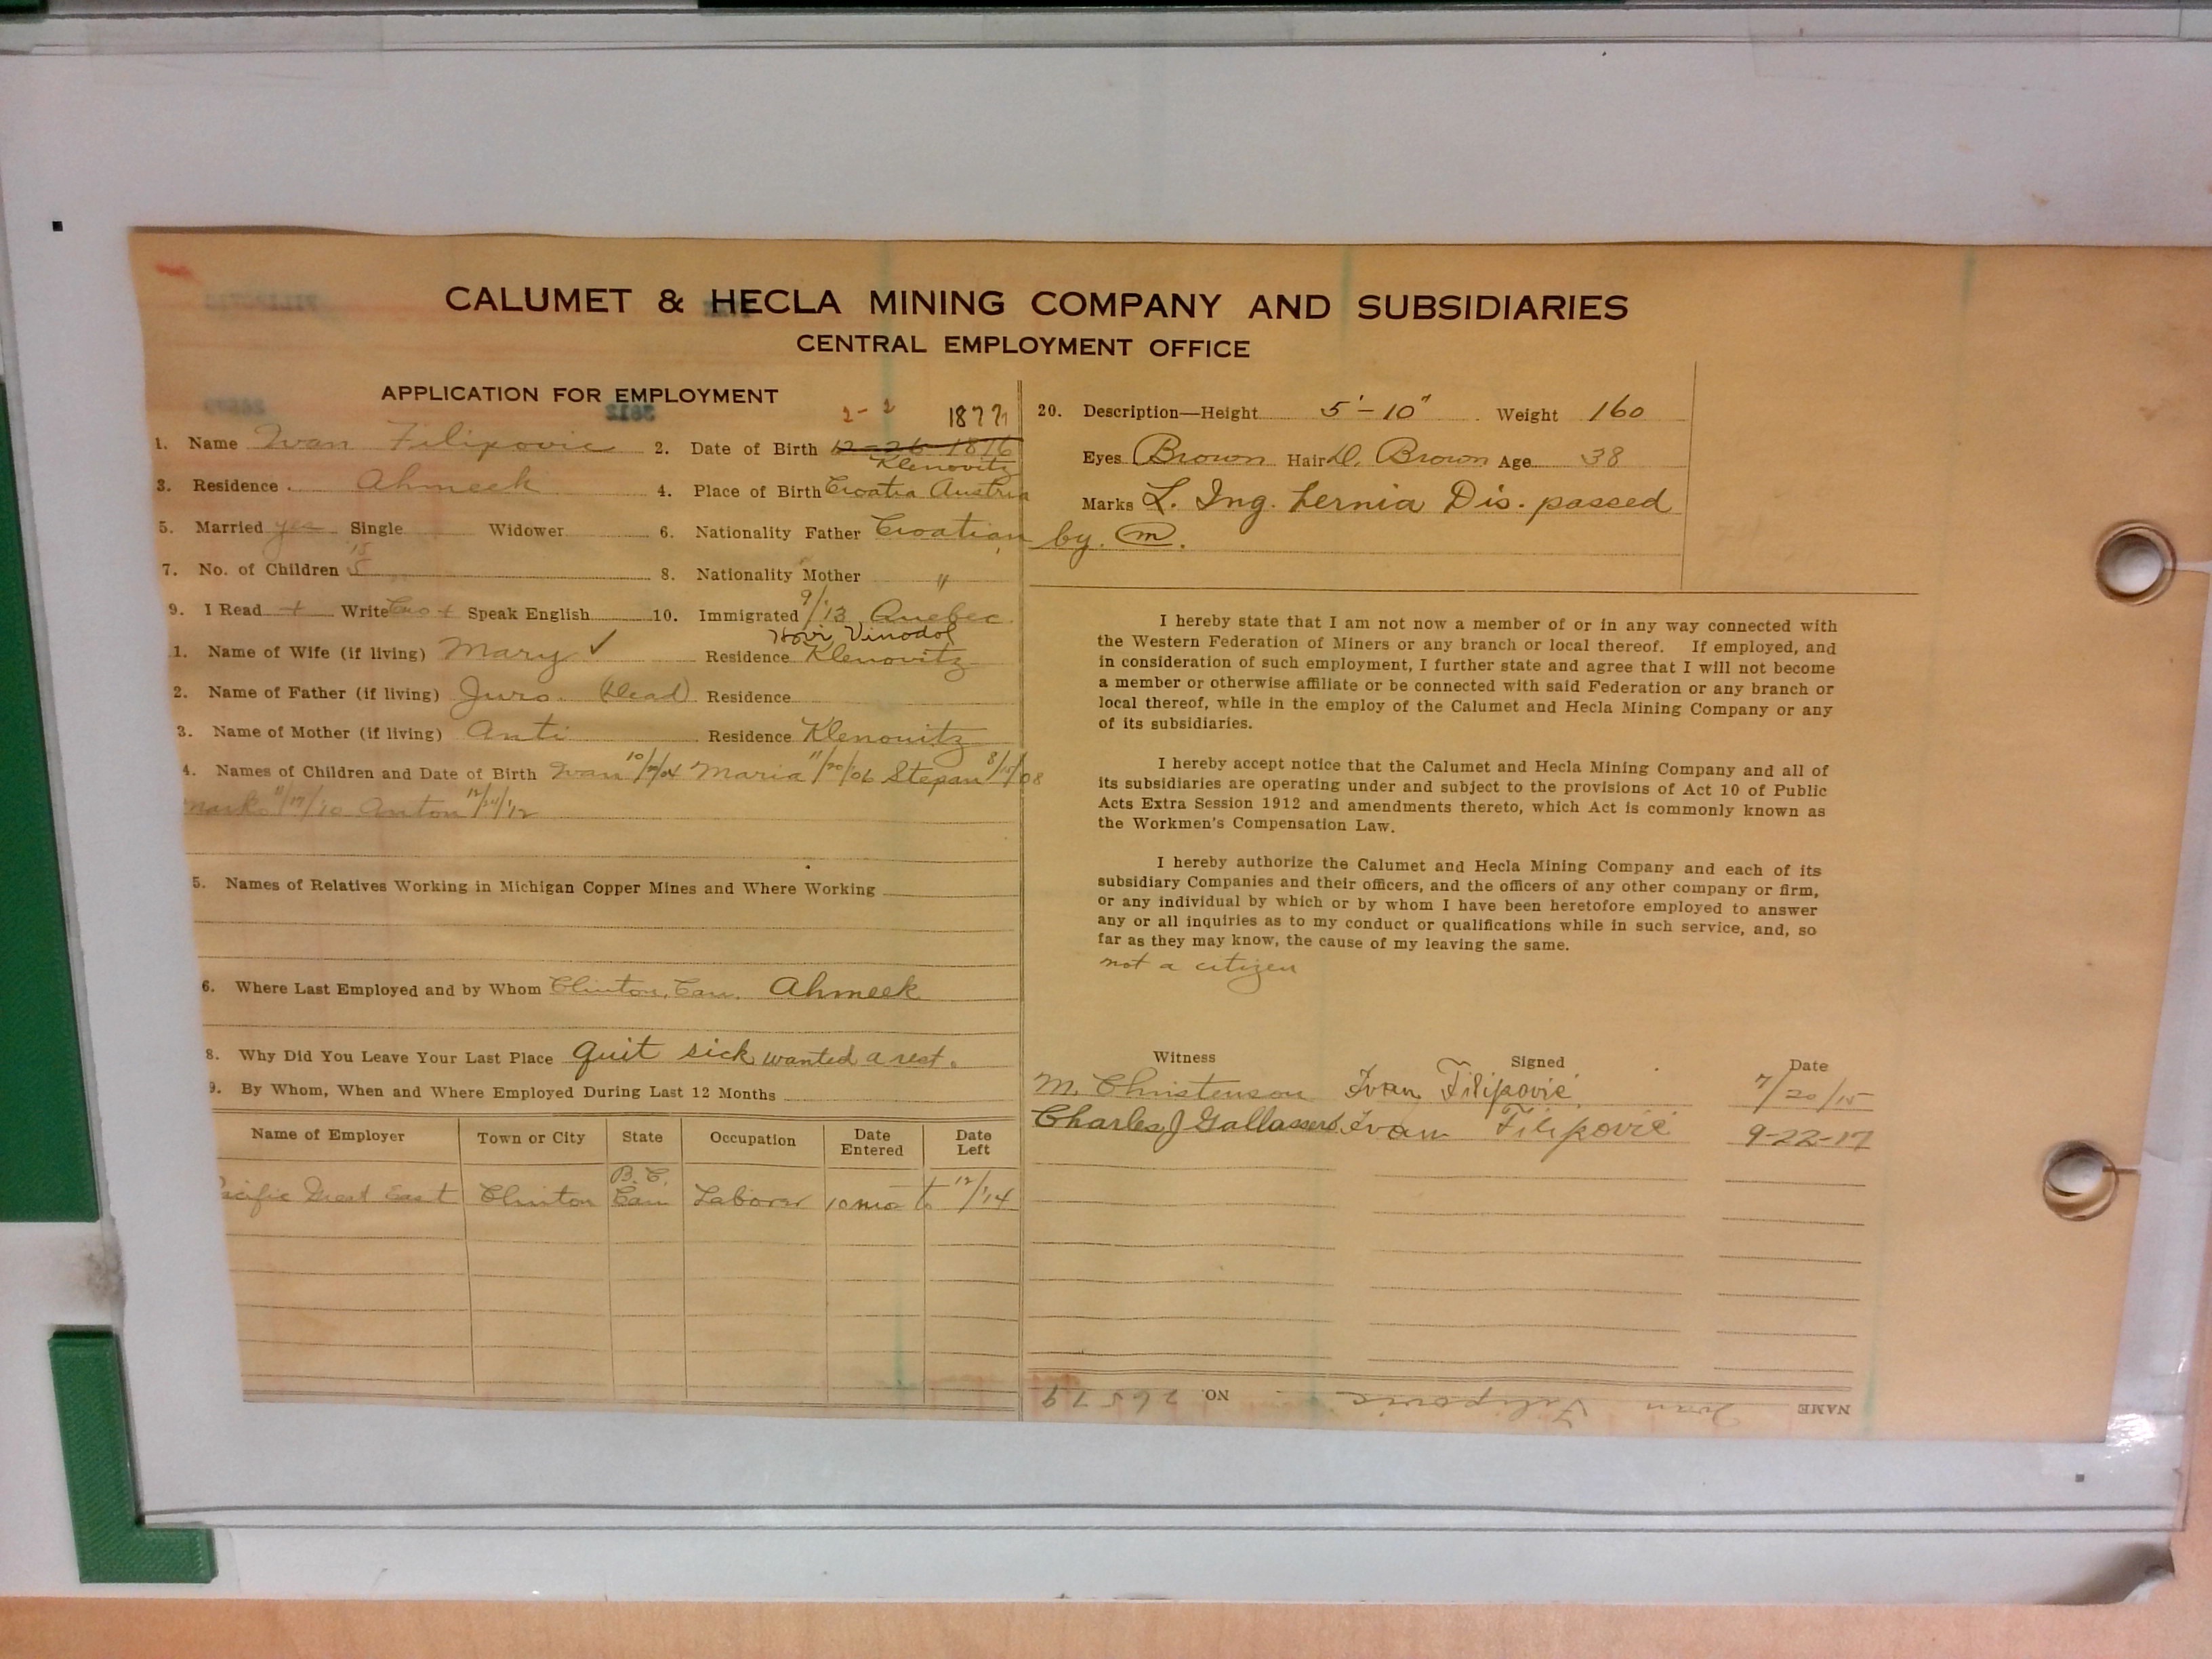 CALUMET & HECLA MINING COMPANY AND SUBSIDIARIES
CENTRAL EMPLOYMENT OFFICE
APPLICATION FOR EMPLOYMENT
2-2 1877
1. Name Ivan Filipovic 2. Date of Birth 12-26-1876
Klenovitz
3. Residence Ahmeek 4. Place of Birth Croatia Austria
5. Married yes Single Widower 6. Nationality Father Croatian
7. No. of Children 5 8. Nationality Mother "
9. I Read + Write Cro + Speak English 10. Immigrated 9/13 Quebec
Novi Vinodol
1. Name of Wife (if living) Mary ✓ Residence Klenovitz
2. Name of Father (if living) Juro (Dead) Residence
3. Name of Mother (if living) Anti Residence Klenovitz
4. Names of Children and Date of Birth Ivan Maria 11/20/06 Stepan 8/15/08
Mark 11/17/10 Anton 12/24/12
5. Names of Relatives Working in Michigan Copper Mines and Where Working
6. Where Last Employed and by Whom Clinton, Can. Ahmeek
8. Why Did You Leave Your Last Place quit sick wanted a rest.
9. By Whom, When and Where Employed During Last 12 Months
Name of Employer Town or City State Occupation Date Entered Date Left
B.C.
Pacific Great East Clinton Can Laborer 10 mo to 12/14
20. Description—Height 5'-10" Weight 160
Eyes Brown Hair D. Brown Age 38
Marks L. Ing. hernia Dis. passed
by. m.
I hereby state that I am not now a member of or in any way connected with
the Western Federation of Miners or any branch or local thereof. If employed, and
in consideration of such employment, I further state and agree that I will not become
a member or otherwise affiliate or be connected with said Federation or any branch or
local thereof, while in the employ of the Calumet and Hecla Mining Company or any
of its subsidiaries.
I hereby accept notice that the Calumet and Hecla Mining Company and all of
its subsidiaries are operating under and subject to the provisions of Act 10 of Public
Acts Extra Session 1912 and amendments thereto, which Act is commonly known as
the Workmen's Compensation Law.
I hereby authorize the Calumet and Hecla Mining Company and each of its
subsidiary Companies and their officers, and the officers of any other company or firm,
or any individual by which or by whom I have been heretofore employed to answer
any or all inquiries as to my conduct or qualifications while in such service, and, so
far as they may know, the cause of my leaving the same.
not a citizen
Witness Signed Date
M. Christenson Ivan Filipović 7/20/15
Charles J Gallassero Ivan Filipović 9-22-17
NAME Ivan Filipovic NO. 26579